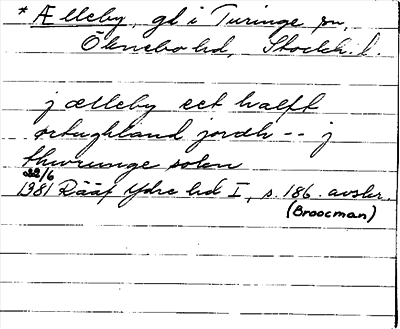 * Ælleby, gl i Turinge sn,
Öknebo hd, Stockh. l.
j ælleby eet halft
ortughland jordh -- j
thwrunge sokn
22/6
1381 Rääf Ydre hd I, s. 186. avskr.
(Broocman)